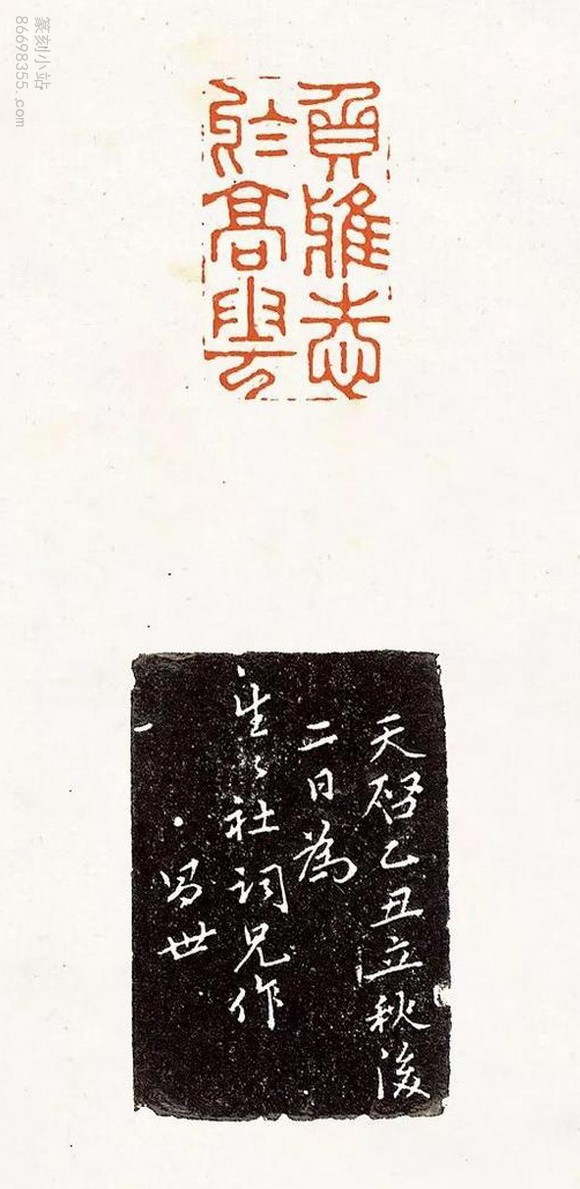 篆刻小站
86698355.com
負雅志
於高雲
天啓乙丑立秋後
二日為
社詞兄作
昌世